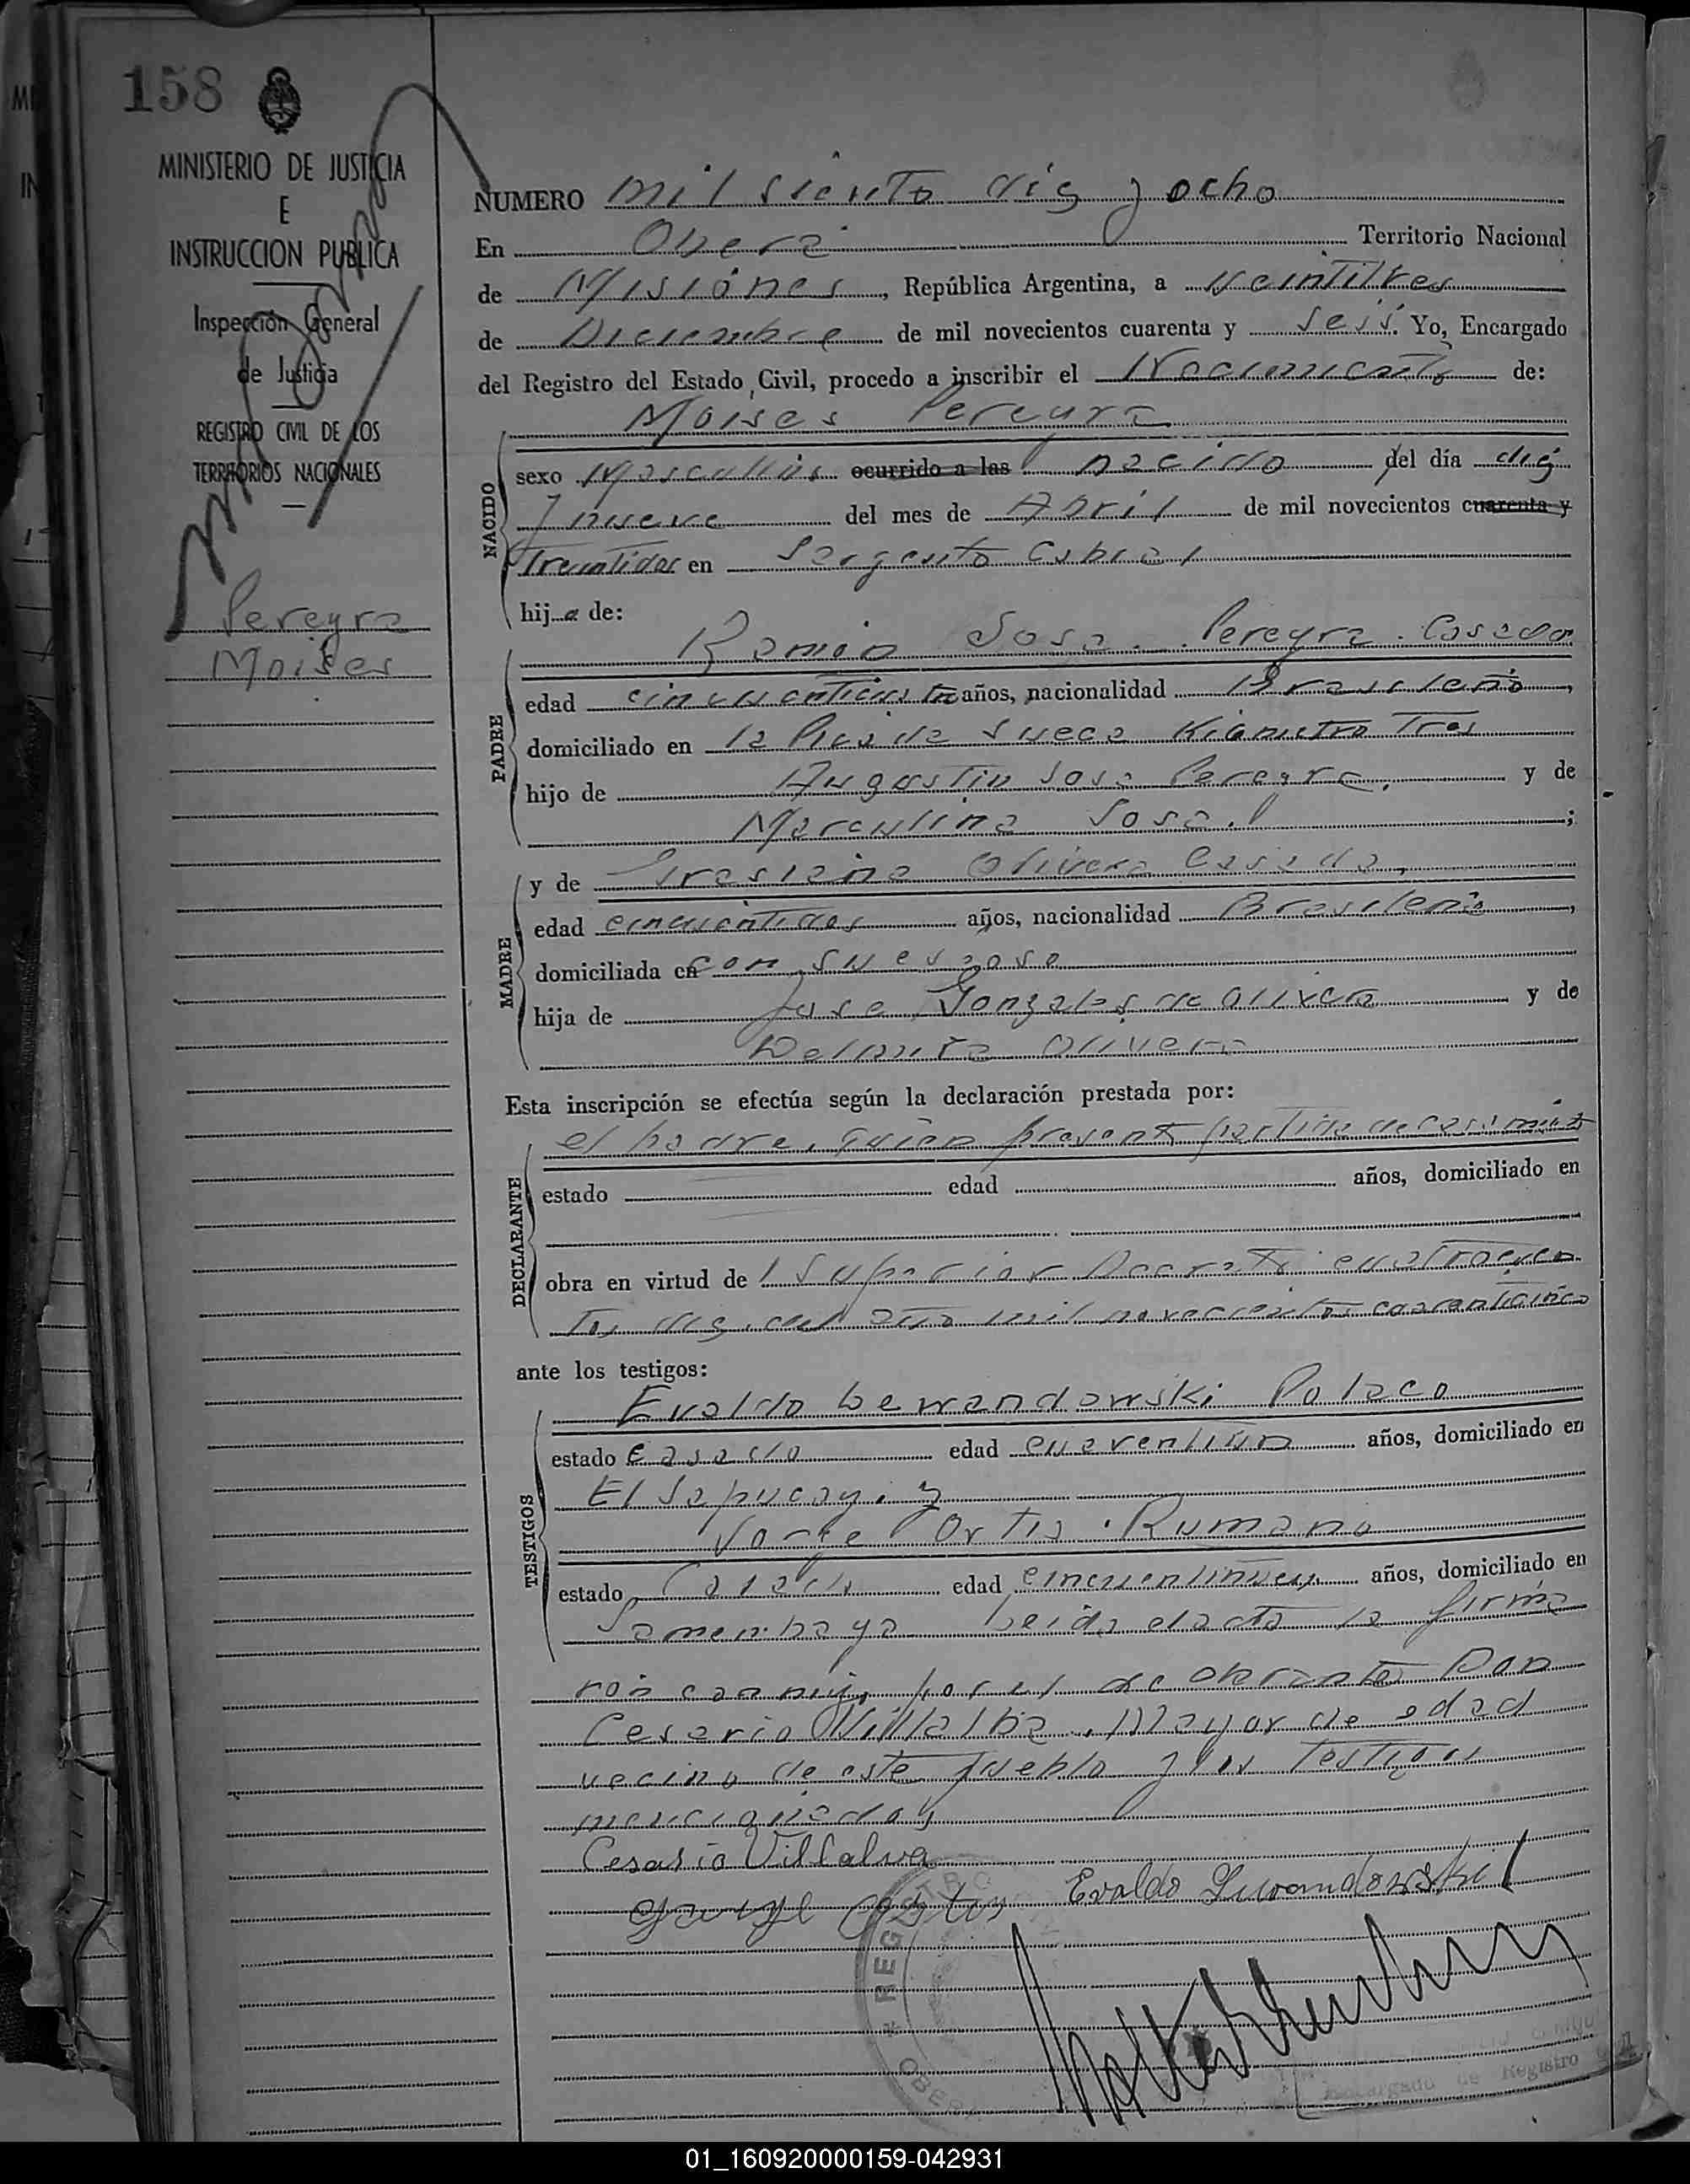 158
MINISTERIO DE JUSTICIA
E
INSTRUCCION PUBLICA
Inspección General
de Justicia
REGISTRO CIVIL DE LOS
TERRITORIOS NACIONALES
Pereyra
Moises
NUMERO mil siento dis y ocho
En Obera Territorio Nacional
de Misiones, República Argentina, a veintitres
de Diciembre de mil novecientos cuarenta y seis. Yo, Encargado
del Registro del Estado Civil, procedo a inscribir el Nacimiento de:
Moises Pereyra
NACIDO
sexo Masculino ocurrido a las nacido del día dis
y nueve del mes de Abril de mil novecientos cuarenta y
Treintidos en Sargento Cabral
hij o de:
PADRE
Ramon Sosa Pereyra. Casado
edad cincuenticuatro años, nacionalidad Brasileño,
domiciliado en la Picada Sueca Kilometro Tres
hijo de Augustin Sosa Pereyra, y de
Marculina Sosa;
MADRE
y de Grasiana Olivera Casada,
edad cincuentidos años, nacionalidad Brasileña,
domiciliada en con su esposo
hija de Jose Gonzales de Olivera y de
Olivera
Esta inscripción se efectúa según la declaración prestada por:
DECLARANTE
el padre, quien presenta partida de casamiento
estado edad años, domiciliado en
obra en virtud de l Superior Decreto cuatrocien
tos dis, del año mil novecientos cuarenticinco
ante los testigos:
TESTIGOS
Evaldo Lewandowski Polaco
estado Casado edad cuarentiun años, domiciliado en
El Sapucay. y
Jorge Ortis. Rumano
estado Casado edad cincuentinueve años, domiciliado en
Samambaya Leida el acta la firma
ron conmigo, por el declarante Don
Cesario Villalba, Mayor de edad
vecino de este pueblo y los Testigos
mencionados
Cesario Villalva
Evaldo Lewandowski
REGISTRO
OBERA
Encargado de Registro
01_160920000159-042931